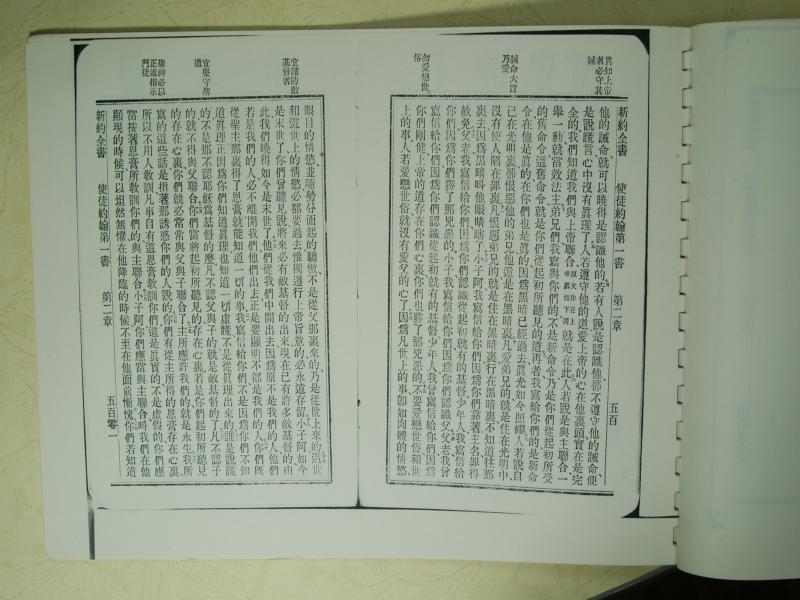 真知上帝
者必守其
誡
誡命大旨
乃愛
勿愛戀世
俗
新約全書 使徒約翰第一書 第二章 五百
他的誡命就可以曉得是認識他的若有人說是認識他卻不遵守他的誡命便
是說謊言心中沒有眞理了人若遵守他的道愛上帝的心在他裏頭實在是完
全的我們知道我們與上帝聯合就是在此人若說是與主聯合一
舉一動就當效法主弟兄們我寫與你們的不是新命令乃是你們從起初所受
的舊命令這舊命令就是你們從起初所聽見的道再者我寫給你們的是新命
令在他是眞的在你們也是眞的因爲黑暗已經過去眞光如今照耀人若說自
己在光明裏卻恨惡他的弟兄他還是在黑暗裏凡愛弟兄的就是住在光明中
沒有使人陷在罪裏凡恨惡弟兄的就是住在黑暗裏行在黑暗裏不知道往那
裏去因爲黑暗叫他眼睛瞎了小子阿我寫信給你們因爲你們靠著主名罪得
赦免父老我寫信給你們因爲你們認識從起初就有的基督少年人我寫信給
你們因爲你們勝了那兇惡的小子我寫信給你們因爲你們認識父父老我曾
寫信給你們因爲你們認識從起初就有的基督少年人我曾寫信給你們因爲
你們剛健上帝的道存在你們心裏你們也勝了那兇惡的不要愛戀世俗和世
上的事人若愛戀世俗就沒有愛父的心了因爲凡世上的事卽如肉體的情慾
宜謹防敵
基督者
宜堅守聖
道
聖神必以
正道指示
門徒
眼目的情慾並隨勢分而起的驕傲不是從父那裏來的乃是從世上來的這世
和這世上的情慾必都要過去惟獨遵行上帝旨意的必永遠存留小子阿如今
是末世了你們曾聽見說將來必有敵基督的出來現在已有許多敵基督的由
此我們曉得如今是末世了他們從我們中間出去因爲原不是我們的人他們
若是我們的人必不離開我們他們出去正是要顯明不都是我們的人你們旣
從聖主那裏得了恩膏就能知道一切的事我寫信給你們不是因爲你們不知
道眞理正因爲你們知道眞理也知道一切虛謊不是從眞理出來的誰是說謊
的不是那不認耶穌爲基督的麼凡不認父與子的就是敵基督的了凡不認子
的就不得與父聯合你們當將起初所聽見的存在心裏若是你們起初所聽見
的存在心裏你們就必常常與父與子聯合了主所應許我們的就是永生我所
寫的這些話是指著那誘惑你們的人說的你們有從主所得的恩膏存在心裏
所以不用人敎訓凡事自有這恩膏敎訓你們這是眞實的不是虛假的你們應
當按著恩膏所敎訓你們的與主聯合小子阿你們應當與主聯合呌我們在他
顯現的時候可以坦然無懼在他降臨的時候不至在他面前慚愧你們若知道
新約全書 使徒約翰第一書 第二章 五百零一